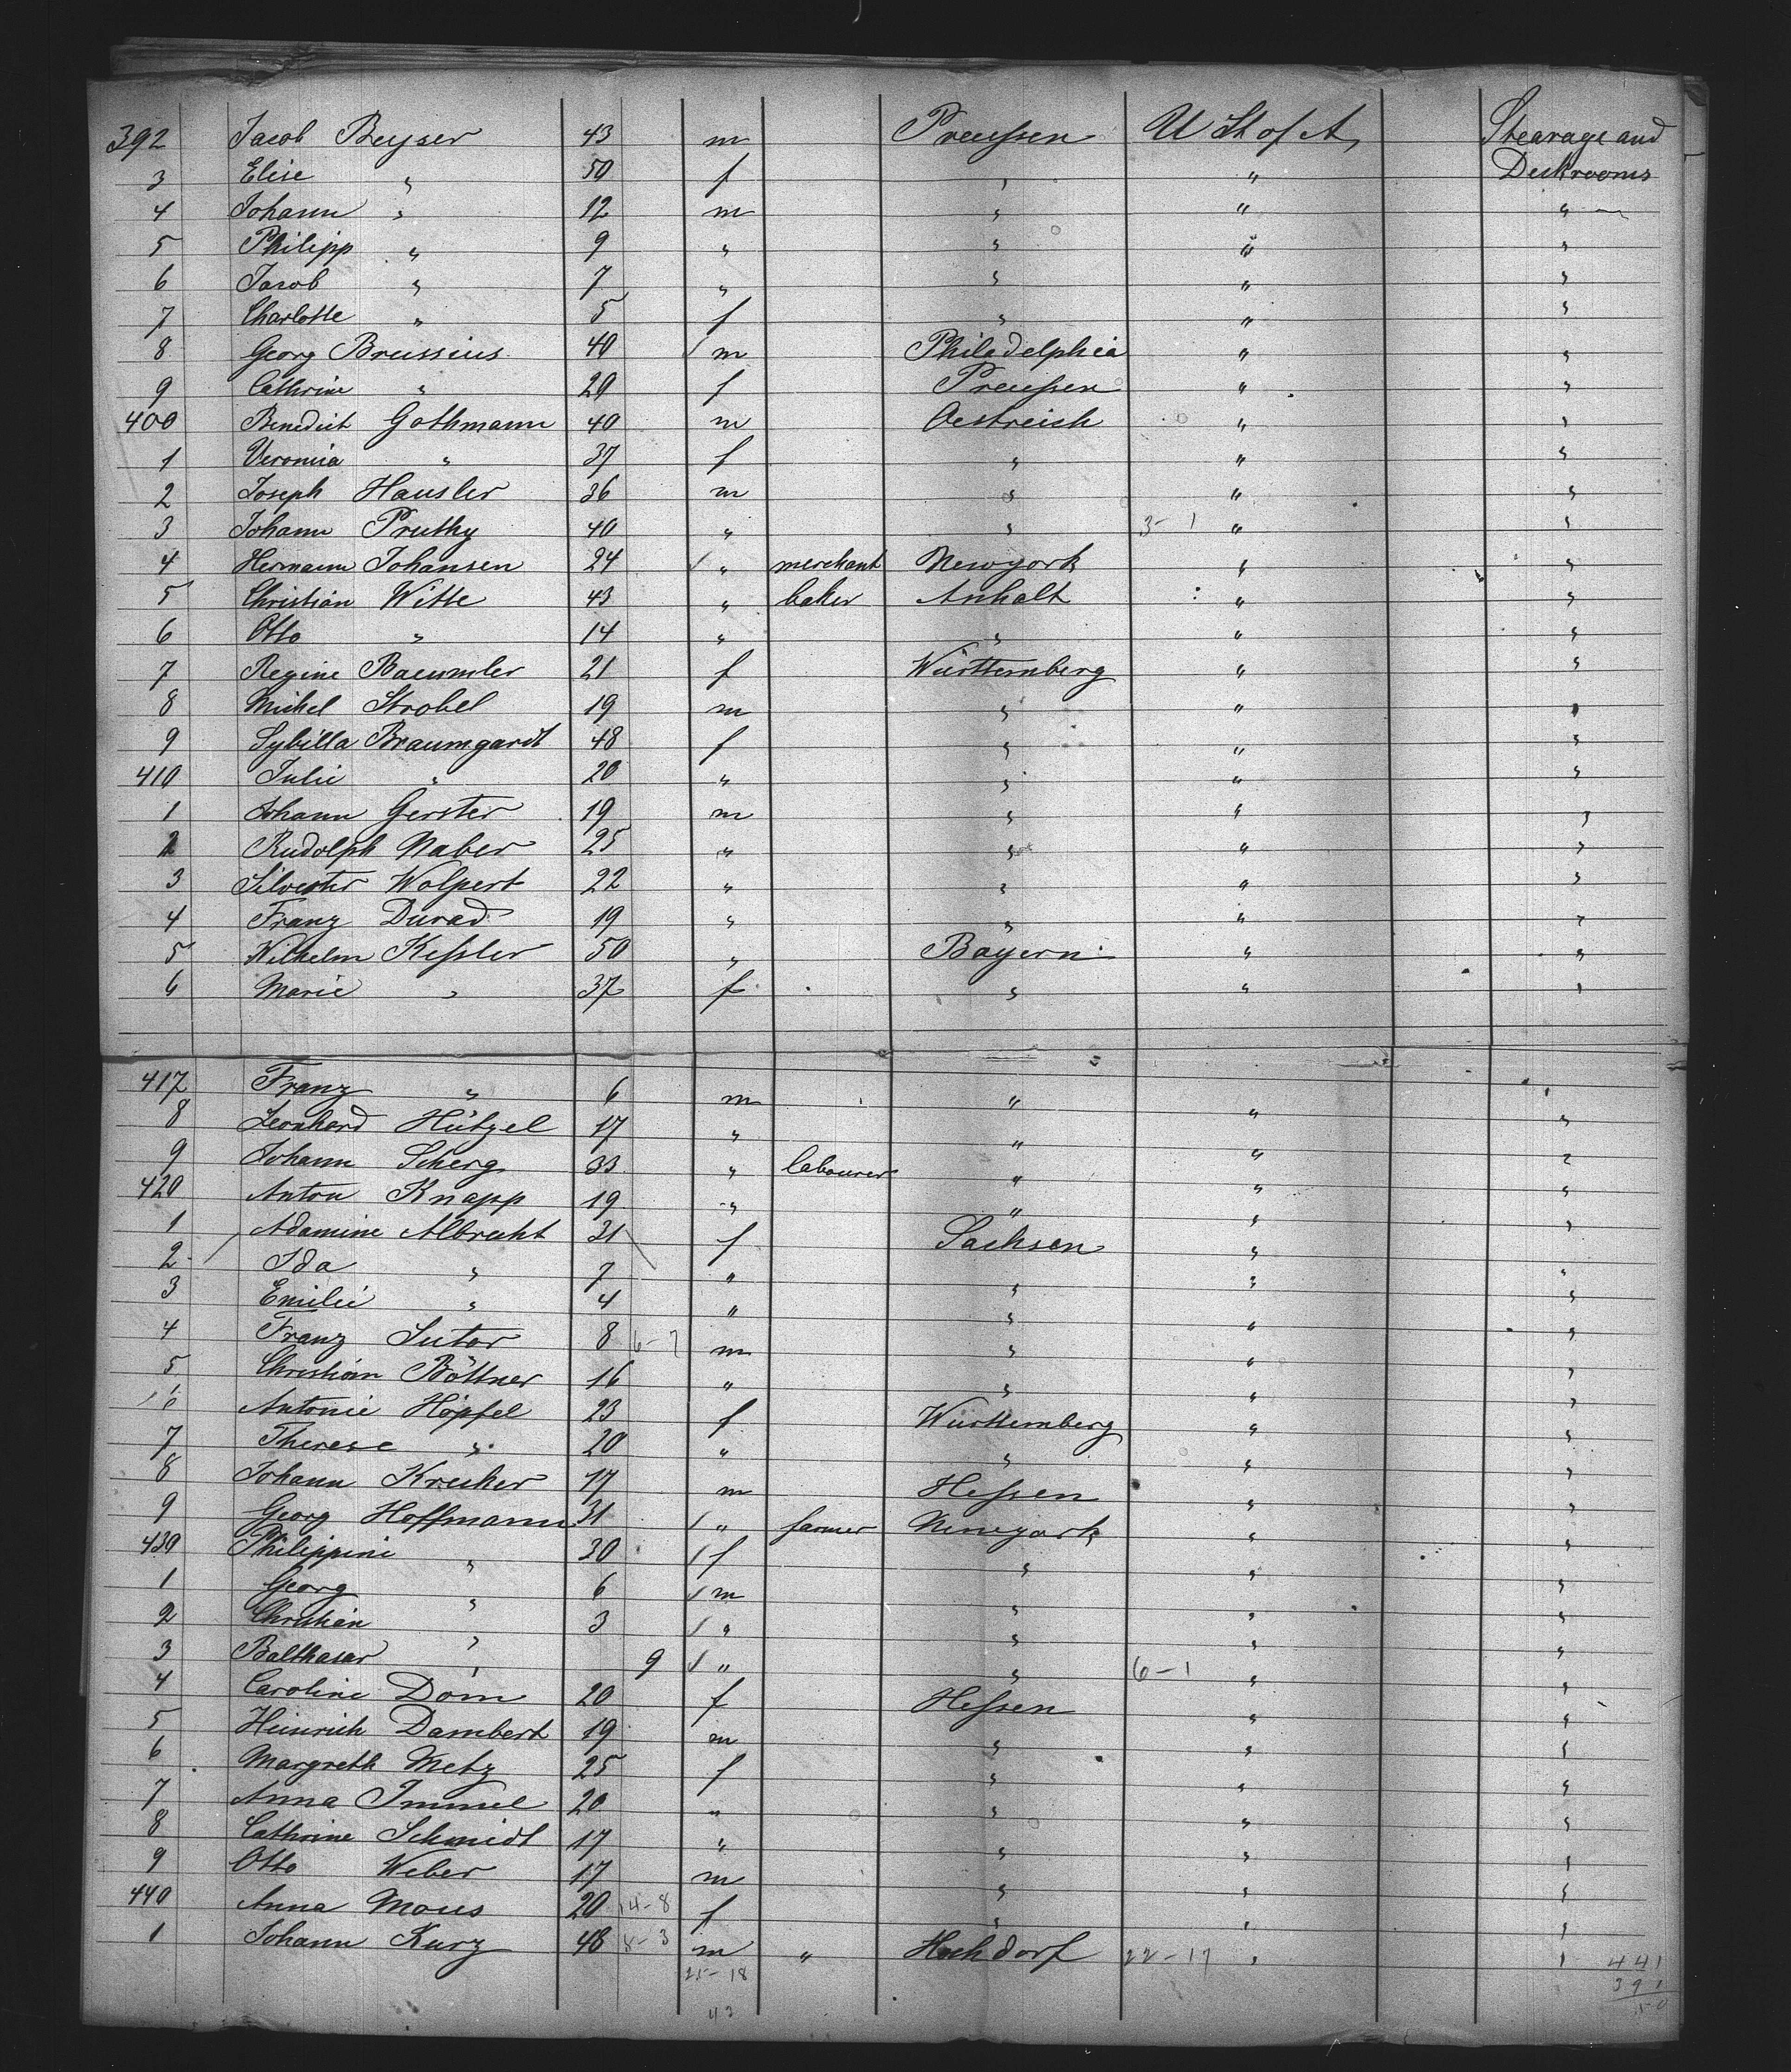 392 Jacob Beyser 43 m Preussen U St of A, Stearage and
3 Elise " 50 f " " Deckrooms
4 Johann " 12 m " " "
5 Philipp " 9 " " " "
6 Jacob " 7 " " " "
7 Charlotte " 5 f " " "
8 Georg Brussius 40 m Philadelphia " "
9 Cathrine " 20 f Preussen " "
400 Benedict Gothmann 40 m Oestreich " "
1 Veronia " 37 f " " "
2 Joseph Hausler 36 m " " "
3 Johann Pruthy 40 " " 3-1 " "
4 Hermann Johansen 24 " merchant Newyork " "
5 Christian Witte 43 " baker Anhalt " "
6 Otto " 14 " " " "
7 Regine Baeumler 21 f Württemberg " "
8 Michel Strobel 19 m " " "
9 Sybilla Braumgardt 48 f " " "
410 Julie " 20 " " " "
1 Johann Gerster 19 m " " "
2 Rudolph Naber 25 " " " "
3 Silvester Wolpert 22 " " " "
4 Franz Durad 19 " " " "
5 Wilhelm Kessler 50 " Bayern " "
6 Marie " 37 f " " "
417 Franz " 6 m " " "
8 Leonhard Hützel 17 " " " "
9 Johann Scherg 33 " labourer " " "
420 Anton Knapp 19 " " " "
1 Adamine Albrecht 31 f Sachsen " "
2 Ida " 7 " " " "
3 Emilie " 4 " " " "
4 Franz Sutor 8 6-7 m " " "
5 Christian Böttner 16 " " " "
6 Antonie Höpfel 23 f Württemberg " "
7 Therese " 20 " " " "
8 Johann Krucker 17 m Hessen " "
9 Georg Hoffmann 31 " farmer Newyork " "
430 Philippine " 30 f " " "
1 Georg " 6 m " " "
2 Christian " 3 " " " "
3 Balthasar " 9 " " 6-1 " "
4 Caroline Dom 20 f Hessen " "
5 Heinrich Dambert 19 m " " "
6 Margreth Metz 25 f " " "
7 Anna Immel 20 " " " "
8 Cathrine Schmidt 17 " " " "
9 Otto Weber 17 m " " "
440 Anna Maus 20 14-8 f " " "
1 Johann Kurz 48 8-3 m " Hochdorf 22-17 " " 441
25-18 391
43 50